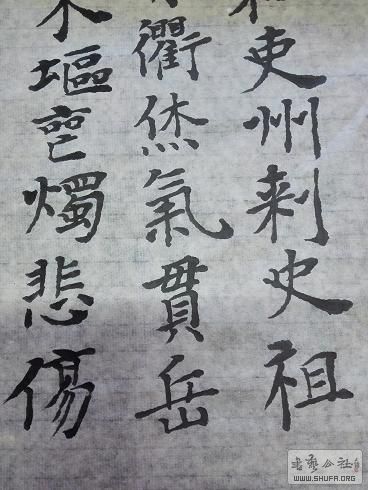 吏州刺史祖
衢烋氣貫岳
塸燭悲傷
書藝公社
WWW.SHUFA.ORG